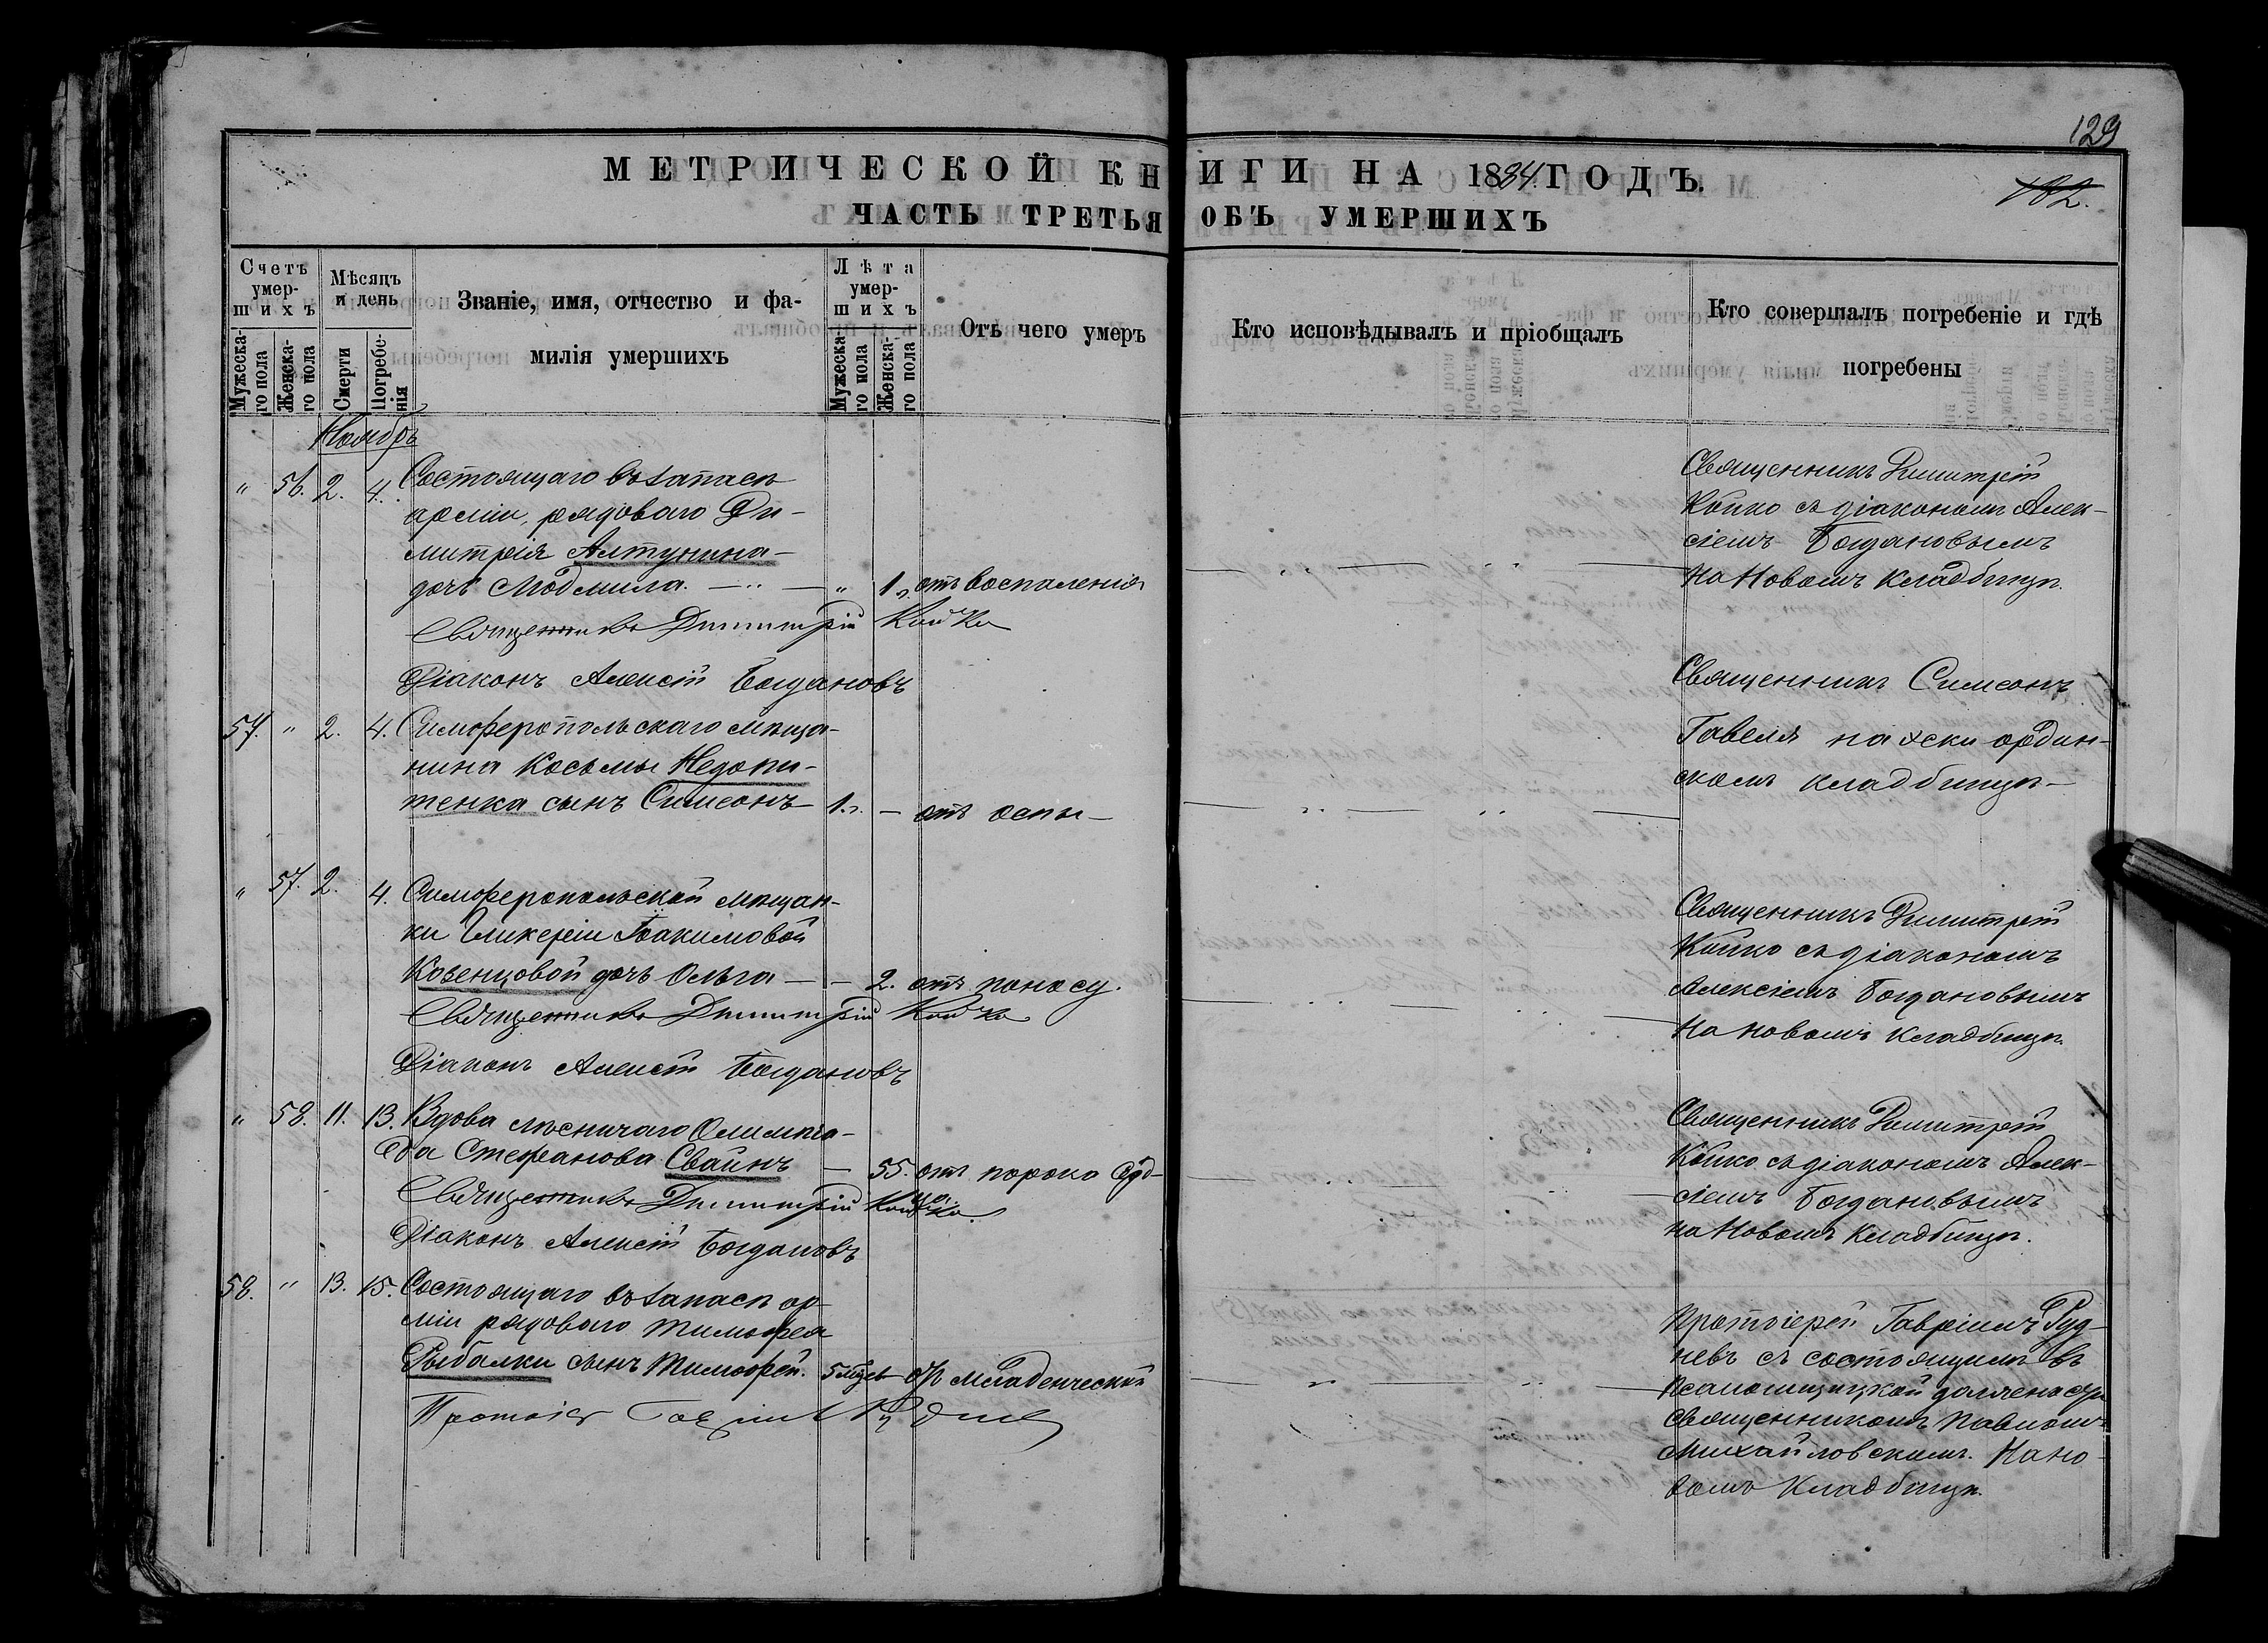 129
МЕТРИЧЕСКОЙ КНИГИ НА 1884 ГОДЪ.
182.
ЧАСТЬ ТРЕТЬЯ ОБЪ УМЕРШИХЪ
Счетъ умер-шихъ
Мужеска-го пола
Женска-го пола
Мѣсяцъ и день
Смерти
Погребе-нія
Званіе, имя, отчество и фа-
милія умершихъ
Лѣта умер-шихъ
Мужеска-го пола
Женска-го пола
Отъ чего умеръ
Кто исповѣдывалъ и пріобщалъ
Кто совершалъ погребеніе и гдѣ
погребены
Ноябрь
" 56. 2. 4. Состоящаго въ запасѣ
арміи, рядоваго Ди-
митрія Алтунина-
дочь Людмила. — " 1. отъ воспаленія
Священникъ Димитрій Койко
Діаконъ Алексій Богдановъ
Священникъ Димитрій
Койко съ діакономъ Алек-
сіемъ Богдановымъ
на Новомъ кладбищѣ.
57. " 2. 4. Симферопольскаго мѣща-
нина Косьмы Недопи-
тенка сынъ Симеонъ 1. — отъ оспы —
Священникъ Симеонъ
Гавеля на ордин-
скомъ кладбищѣ —
" 57. 2. 4. Симферопольской мѣщан-
ки Гликеріи Іоакимовой
Козенцовой дочь Ольга — — 2. отъ поносу.
Священникъ Димитрій Койко
Діаконъ Алексій Богдановъ
Священникъ Димитрій
Койко съ діакономъ
Алексіемъ Богдановымъ
на новомъ кладбищѣ.
" 58. 11. 13. Вдова лѣсничаго Олимпіа-
да Стефанова Свайнъ — 55. отъ порока серд-
ца.
Священникъ Димитрій Койко.
Діаконъ Алексій Богдановъ
Священникъ Димитрій
Койко съ діакономъ Алек-
сіемъ Богдановымъ
на Новомъ кладбищѣ.
58. " 13. 15. Состоящаго въ запасѣ ар-
міи рядоваго Тимофея
Рыбалки сынъ Тимофей. 5 мѣс. — отъ младенческой
Протоіер Гавріилъ Рудневъ
Протоіерей Гавріилъ Руд-
невъ съ состоящимъ въ
псаломщицкой должности
священникомъ Павломъ
Михайловскимъ. На но-
вомъ кладбищѣ.